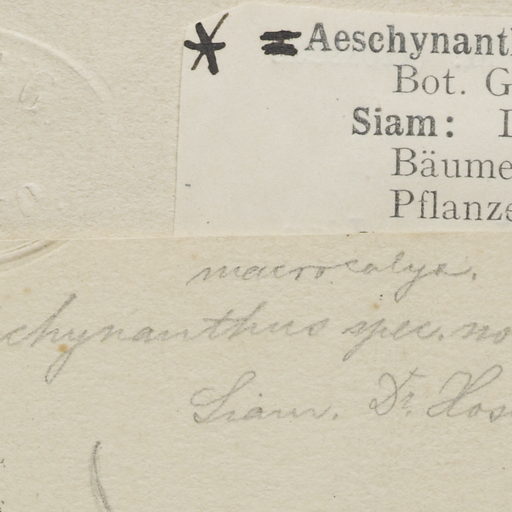 * = Aeschynant
Bot. G
Siam:
Bäume
Pflanze
macrocalyx.
chynanthus spec. no
Siam. Dr. Hos